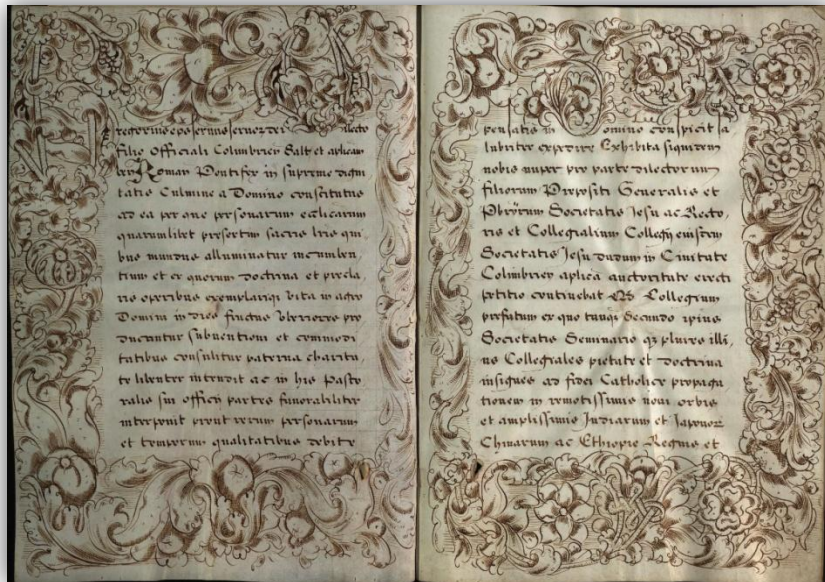 regorius eps servus servoz dei dilecto
filio Officiali Colimbrien Salt et aplicam
ben Roman Pontifex in supreme digni
tatis Culmine a Domino constitutus
ad ea per que personarum eclicarum
quarumlibet presertim sacris lris qui
bus mundus alluminatur incumben,
tium et ex quorum doctrina et precla,
ris operibus exemplariqz vita in agro
Domini in dies fructus vberiores pro
ducantur subventioni et commodi
tatibus consulitur paterna charita,
te libenter intendit ac in his Pasto
ralis sui officii partes favorabiliter
interponit prout rerum personarum
et temporum qualitatibus debite
pensatis in Domino conspicit sa
lubriter expedire Exhibita siquidem
nobis nuper pro parte dilectorum
filiorum Prepositi Generalis et
Pbrorum Societatis Jesu ac Recto,
ris et Collegialium Collegij eiusdem
Societatis Jesu dudum in Civitate
Colimbrien aplica auctoritate erecti
petitio continebat Collegium
prefatum ex quo tanqz secundo ipsius
Societatis Seminario qz plures illi,
us Collegiales pietate et doctrina
insignes ad fidei Catholice propaga
tionem in remotissimis novi orbis
et amplissimis Indiarum et Japonoz
Chinarum ac Ethiopie Regnis et